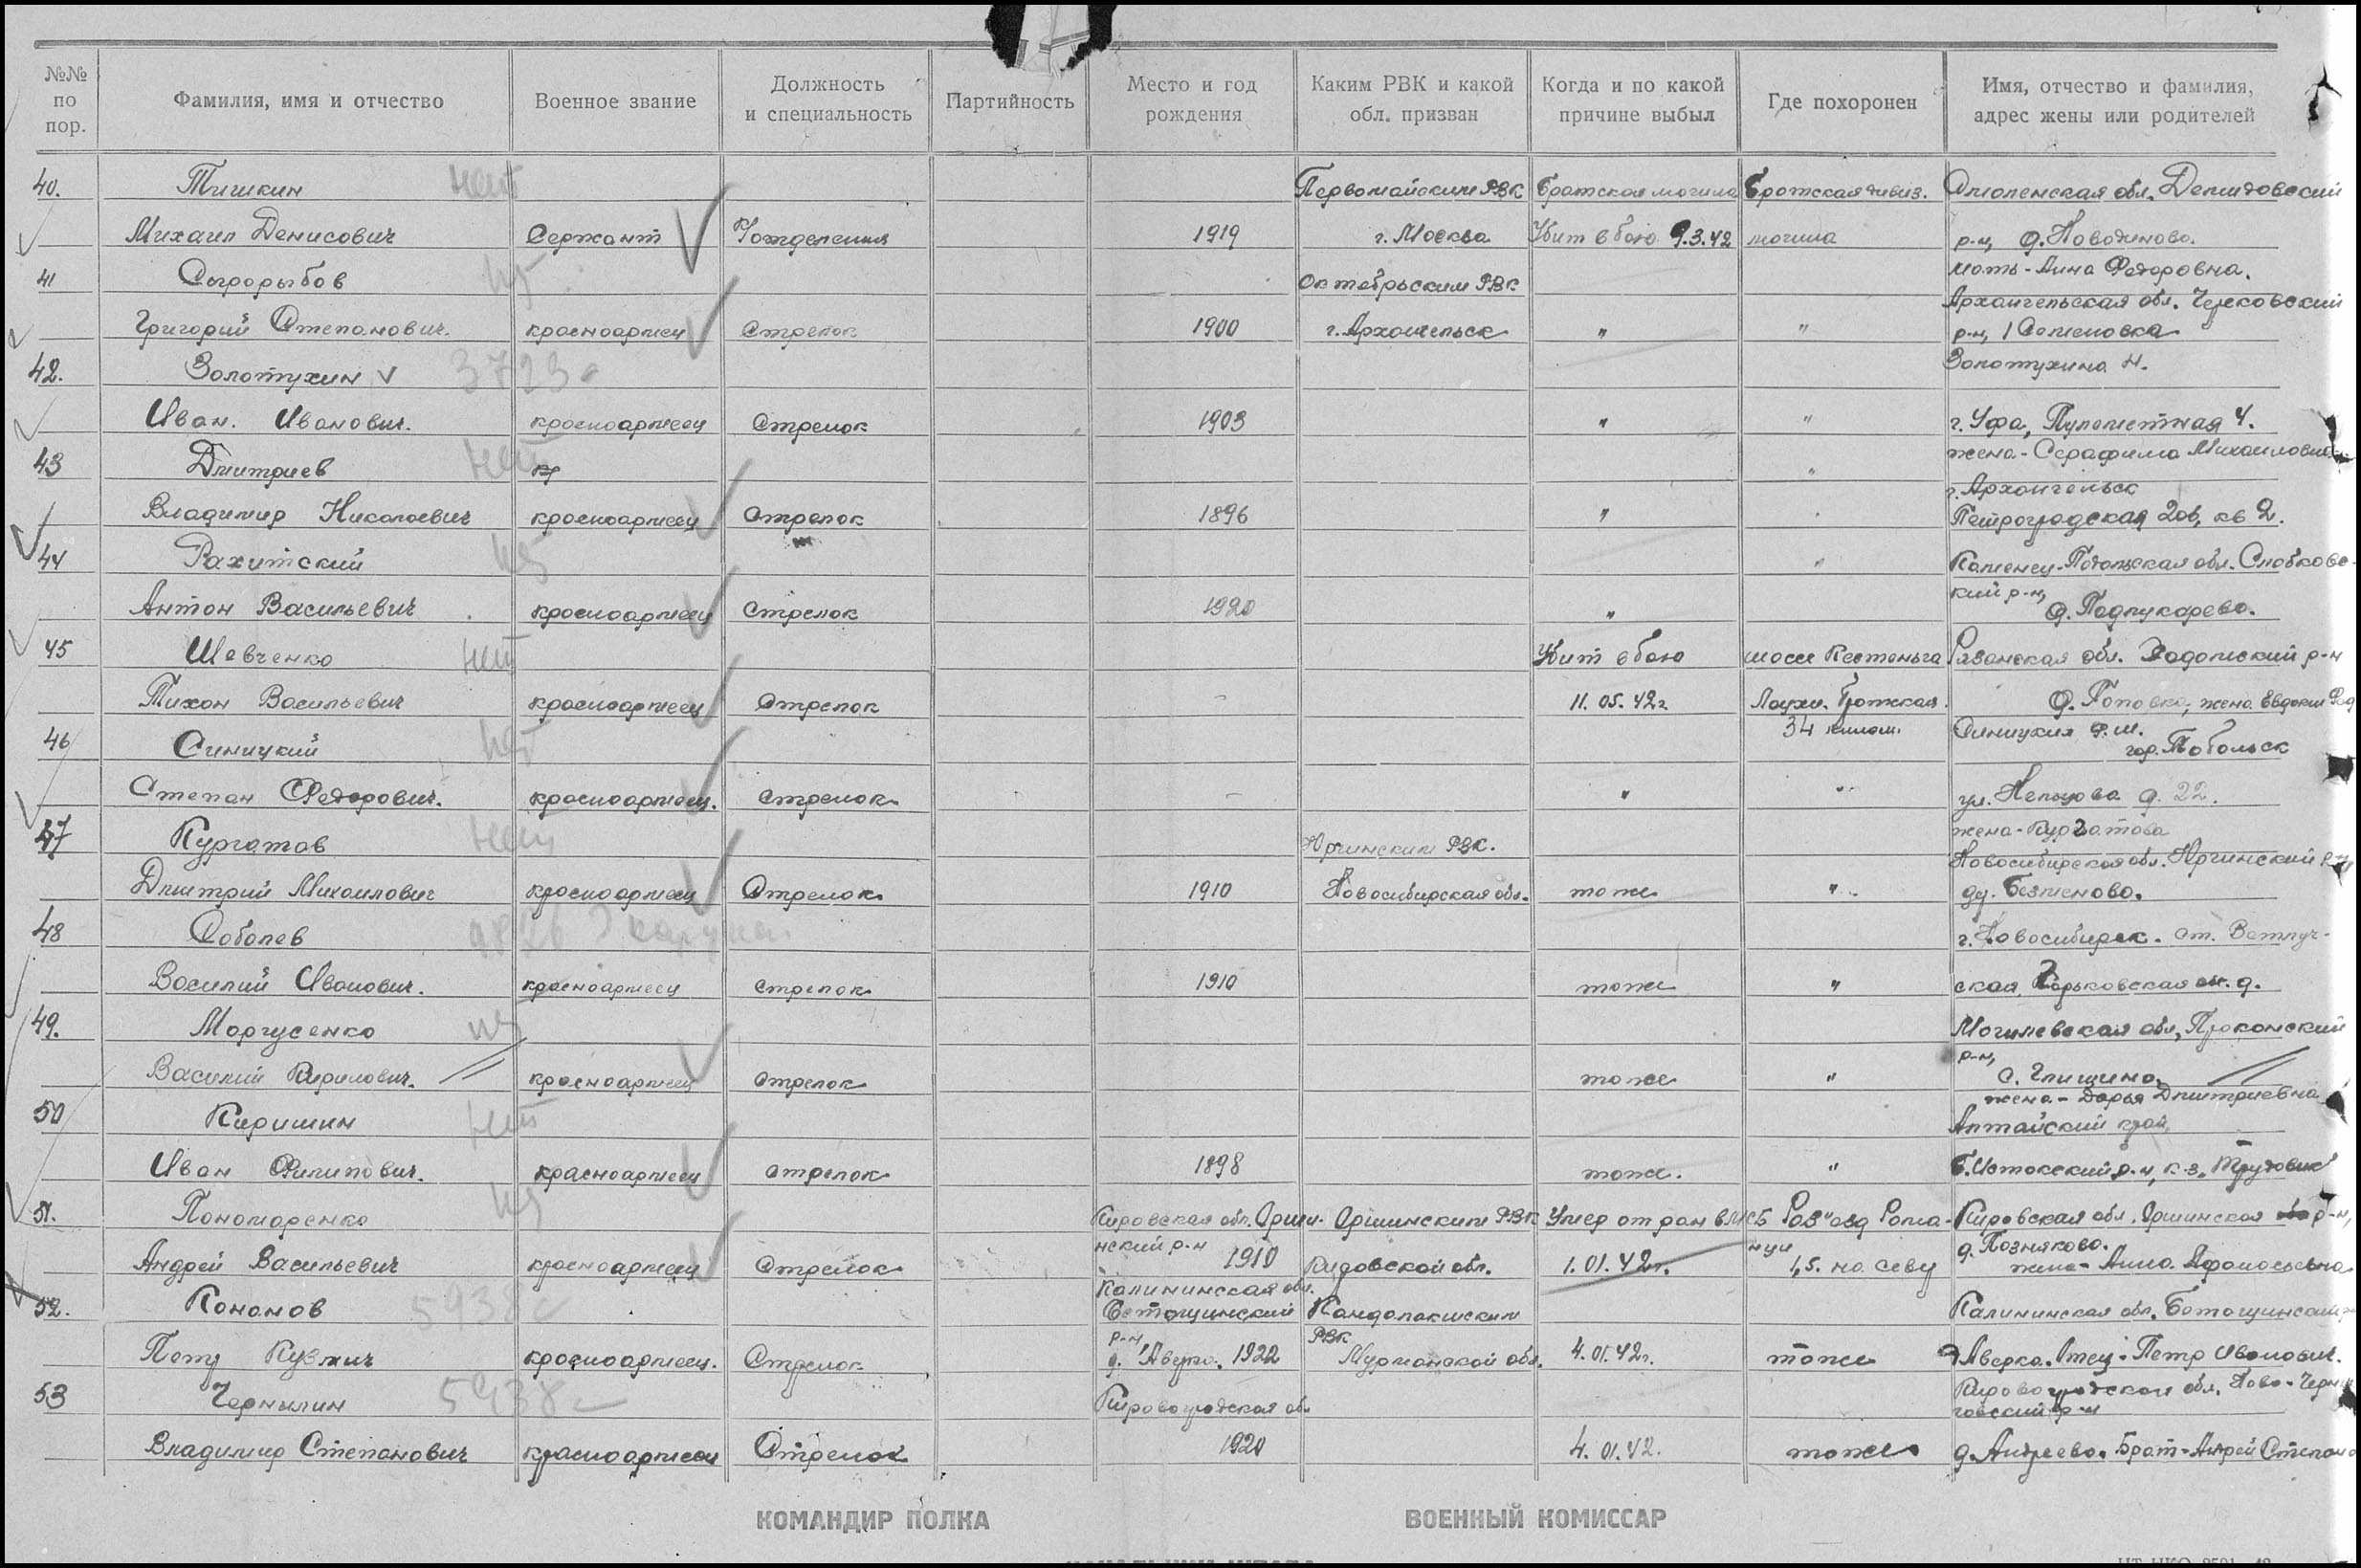 №№ по пор.
Фамилия, имя и отчество
Военное звание
Должность и специальность
Партийность
Место и год рождения
Каким РВК и какой обл. призван
Когда и по какой причине выбыл
Где похоронен
Имя, отчество и фамилия, адрес жены или родителей
40. Тишкин нет Первомайским РВК Братская могила Братская дивиз. Смоленская обл. Демидовский
Михаил Денисович Сержант 1919 г. Москва Убит в бою 9.3.42 могила р-н, д.
мать - Анна Федоровна.
41 нет Октябрьским РВК
Архангельская обл.
Григорий Степанович. красноармеец Стрелок 1900 г. Архангельск " " р-н, Семеновка
42. Золотухин 3723 Золотухина Н.
Иван Иванович. красноармеец Стрелок 1903 " " г. Уфа, Пулеметная 4.
43 Дмитриев нет кр " жена - Серафима Михайловна
г. Архангельск
Владимир Николаевич красноармеец Стрелок 1896 " Петроградская кв 2.
44 Рахитский нет " Каменец-Подольская обл.
кий р-н,
Антон Васильевич красноармеец Стрелок 1920 " д.
45 Шевченко нет Убит в бою шоссе Кестеньга Рязанская обл. р-н
Тихон Васильевич красноармеец Стрелок - 11.05.42г Лоухи. д. Поповка, жена Евдокия
34 килом.
46 Синицкий нет Синицкая
гор. Тобольск
Степан Федорович. красноармеец. Стрелок - " " ул. д. 22.
47 Кургатов нет Юргинским РВК. жена - Кургатова
Новосибирская обл. Юргинский р-н
Дмитрий Михайлович красноармеец Стрелок 1910 Новосибирская обл. тоже " Безменово.
48 Соболев г. Новосибирск. ст. Ветлуж-
Василий Иванович. красноармеец Стрелок 1910 тоже " ская Горьковская ж.д.
49. Маргусенко нет Могилевская обл,
р-н,
Василий Кирилович. красноармеец Стрелок тоже " с. Глищино,
жена - Дарья Дмитриевна
50 Киришин нет Алтайский край,
Иван Филипович. красноармеец Стрелок 1898 тоже. " Б.Истокский р-н, к-з "Трудовик"
51. Пономаренко нет Кировская обл. Орши- Оршинским РВК Умер от ран в МСБ Раз"езд Рома- Кировская обл. Оршинская р-н,
нский р-н нцы д. Позняково.
Андрей Васильевич красноармеец Стрелок 1910 Кировской обл. 1.01.42г. 1,5. на севу жена - Анна Афонасьевна
Калининская обл.
52. Кононов 5938с Кандалакшским Калининская обл.
р-н, РВК
Петр Кузмич красноармеец. Стрелок д. Аверко. 1922 Мурманской обл. 4.01.42г. тоже д Аверко. Отец - Петр Иванович.
53 Чернылин 5938с Кировоградская об. Кировоградская обл.
говский р-н
Владимир Степанович красноармеец Стрелок 1920 4.01.42. тоже д. Андреево. Брат - Андрей
КОМАНДИР ПОЛКА
ВОЕННЫЙ КОМИССАР